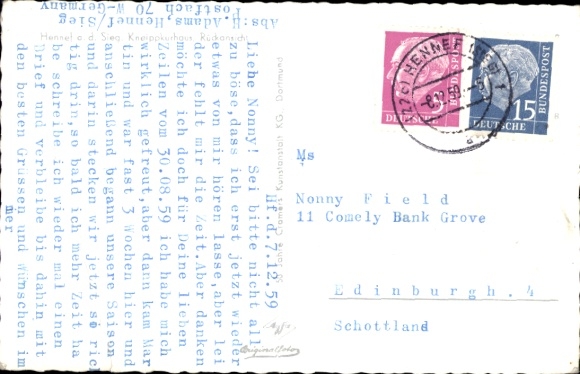 Abs:H.Adams Hennef/Sieg
Postfach 70 W-Germany
Hennef a. d. Sieg Kneippkurhaus, Rückansicht
Hf.d.7.12.59
Liebe Nonny! Sei bitte nicht all
zu böse,dass ich erst jetzt wieder
etwas von mir hören lasse,aber lei
der fehlt mir die Zeit.Aber danken
möchte ich doch für Deine lieben
Zeilen vom 30.08.59 ich habe mich
wirklich gefreut,aber dann kam Mar
tin und war fast 3 Wochen hier und
anschließend begann unsere Saison
und darin stecken wir jetzt so rich
tig drin,so bald ich mehr Zeit ha
be schreibe ich wieder mal einen
Brief und verbleibe bis dahin mit
den besten Grüssen und Wünschen im
mer
Cramers Kunstanstalt KG. Dortmund
HENNEF (SIEG) 1
DEUTSCHE
BUNDESPOST
15
DEUTSCHE
BUNDESPOST
Ms
Nonny Field
11 Comely Bank Grove
Edinburgh.4
Schottland